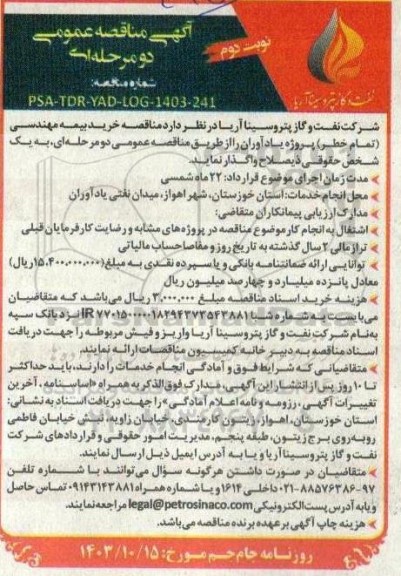 آگهی مناقصه عمومی
دو مرحله‌ای
نوبت دوم
شماره مناقصه:
PSA-TDR-YAD-LOG-1403-241
نفت و گاز پتروسینا آریا
شرکت نفت و گاز پتروسینا آریا در نظر دارد مناقصه خرید بیمه مهندسی
(تمام خطر) پروژه یادآوران را از طریق مناقصه عمومی دو مرحله‌ای، به یک
شخص حقوقی ذیصلاح واگذار نماید.
مدت زمان اجرای موضوع قرارداد: ۲۲ ماه شمسی
محل انجام خدمات: استان خوزستان، شهر اهواز، میدان نفتی یادآوران
مدارک ارزیابی پیمانکاران متقاضی:
اشتغال به انجام کار موضوع مناقصه در پروژه‌های مشابه و رضایت کارفرمایان قبلی
ترازمالی ۲ سال گذشته به تاریخ روز و مفاصا حساب مالیاتی
توانایی ارائه ضمانتنامه بانکی و یا سپرده نقدی به مبلغ (۱۵،۴۰۰،۰۰۰،۰۰۰ ریال)
معادل پانزده میلیارد و چهارصد میلیون ریال
هزینه خرید اسناد مناقصه مبلغ ۳،۰۰۰،۰۰۰ ریال می‌باشد که متقاضیان
می‌بایست به شماره شبا نزد بانک سپه
به‌نام شرکت نفت و گاز پتروسینا آریا واریز و فیش مربوطه را جهت دریافت
اسناد مناقصه به دبیرخانه کمیسیون مناقصات ارائه نمایند.
متقاضیانی که شرایط فوق و آمادگی انجام خدمات را دارند، باید حداکثر
تا ۱۰ روز پس از انتشار این آگهی، مدارک فوق الذکر به همراه «اساسنامه، آخرین
تغییرات آگهی، رزومه و نامه اعلام آمادگی» را جهت دریافت اسناد به نشانی:
استان خوزستان، اهواز، زیتون کارمندی، خیابان زاویه، نبش خیابان فاطمی
روبه‌روی برج زیتون، طبقه پنجم، مدیریت امور حقوقی و قراردادهای شرکت
نفت و گاز پتروسینا آریا و یا به آدرس ایمیل ذیل ارسال نمایند.
متقاضیان در صورت داشتن هرگونه سؤال می‌توانند با شماره تلفن
۰۲۱-۸۸۵۷۶۳۸۶-۹۷ داخلی ۱۶۱۴ و یا شماره همراه ۰۹۱۴۳۱۴۳۸۸۱ تماس حاصل
و یا به آدرس پست الکترونیکی legal@petrosinaco.com مراجعه نمایند.
هزینه چاپ آگهی بر عهده برنده مناقصه می‌باشد.
روزنامه جام جم مورخ: ۱۴۰۳/۱۰/۱۵